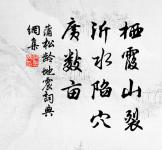 栖霞山裂
沂水陷穴
广数亩
蒲松龄地震词典
网集